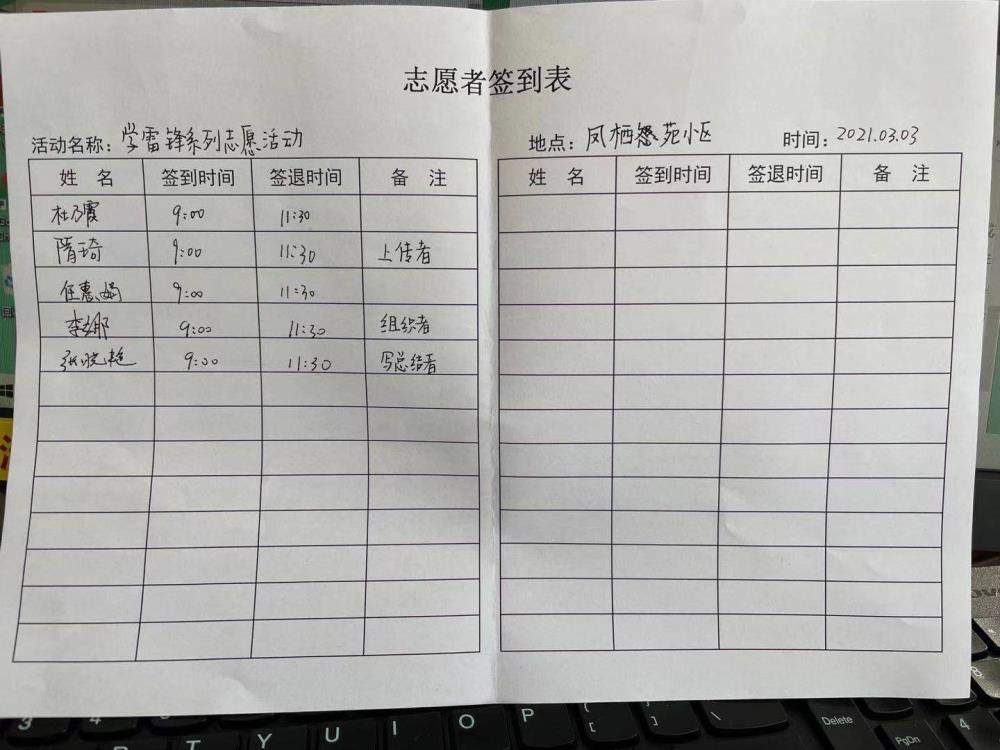 志愿者签到表
活动名称：学雷锋系列志愿活动 地点：凤栖苑小区 时间：2021.03.03
姓 名 签到时间 签退时间 备 注 姓 名 签到时间 签退时间 备 注
杜乃霞 9:00 11:30
隋琦 9:00 11:30 上传者
任惠娟 9:00 11:30
李娜 9:00 11:30 组织者
张晓艳 9:00 11:30 写总结者
3 4 T Y U I O P { [ } ] \ Delete PgDn 8 4